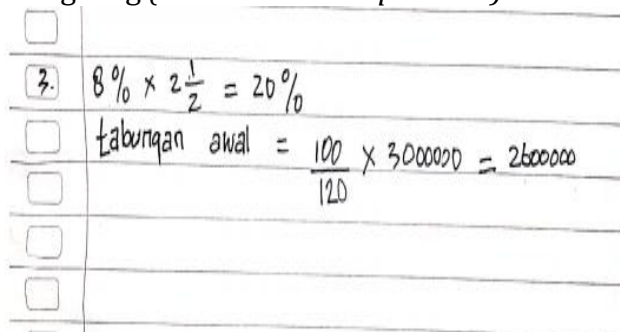 3. 8% × 2 1/2 = 20%
tabungan awal = 100/120 × 3000000 = 2600000